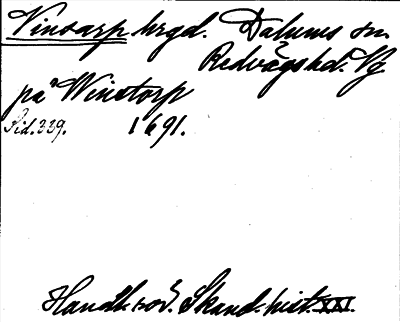 Vinsarp hrgd. Dalums sn
Redvägs hd. Vg
på Winstorp
Sid. 339. 1691.
Handl. rör. Skand. hist. XXI.